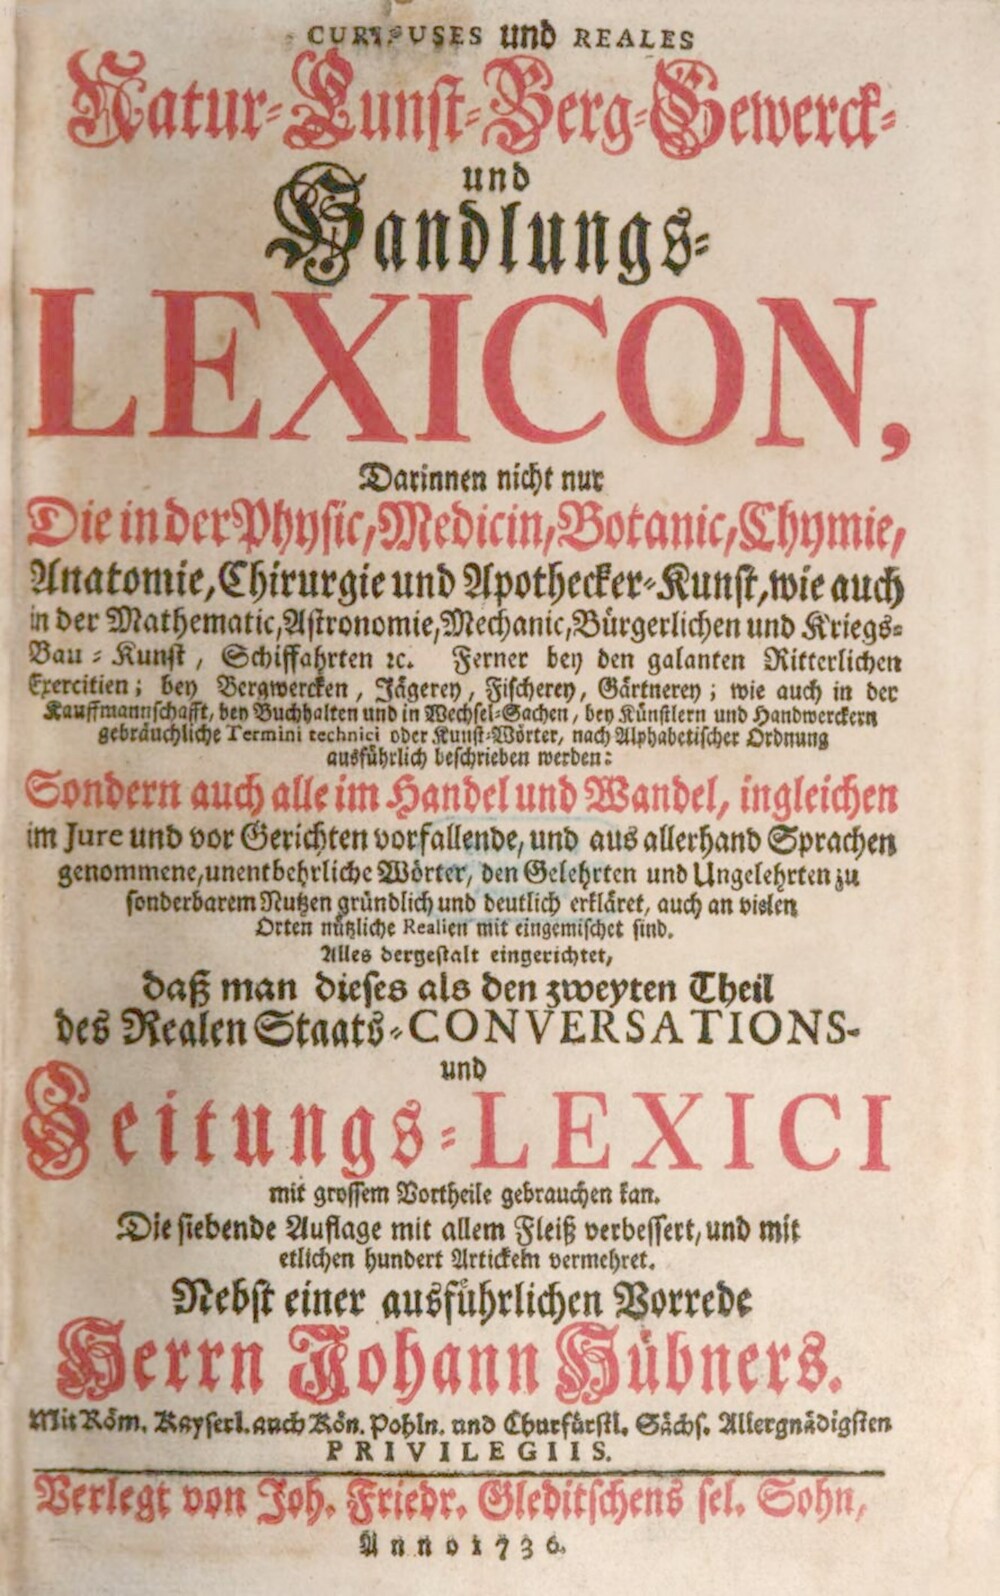 CURIEUSES und REALES
Natur-Kunst-Berg-Gewerck-
und
Handlungs-
LEXICON,
Darinnen nicht nur
Die in der Physic, Medicin, Botanic, Chymie,
Anatomie, Chirurgie und Apothecker-Kunst, wie auch
in der Mathematic, Astronomie, Mechanic, Bürgerlichen und Kriegs-
Bau-Kunst, Schiffahrten ꝛc. Ferner bey den galanten Ritterlichen
Exercitien; bey Bergwercken, Jägerey, Fischerey, Gärtnerey; wie auch in der
Kauffmannschafft, bey Buchhalten und in Wechsel-Sachen, bey Künstlern und Handwerckern
gebräuchliche Termini technici oder Kunst-Wörter, nach Alphabetischer Ordnung
ausführlich beschrieben werden:
Sondern auch alle im Handel und Wandel, ingleichen
im Jure und vor Gerichten vorfallende, und aus allerhand Sprachen
genommene, unentbehrliche Wörter, den Gelehrten und Ungelehrten zu
sonderbarem Nutzen gründlich und deutlich erkläret, auch an vielen
Orten nützliche Realien mit eingemischet sind.
Alles dergestalt eingerichtet,
daß man dieses als den zweyten Theil
des Realen Staats-CONVERSATIONS-
und
Zeitungs-LEXICI
mit grossem Vortheile gebrauchen kan.
Die siebende Auflage mit allem Fleiß verbessert, und mit
etlichen hundert Artickeln vermehret.
Nebst einer ausführlichen Vorrede
Herrn Johann Hübners.
Mit Röm. Kayserl. auch Kön. Pohln. und Churfürstl. Sächs. Allergnädigsten
PRIVILEGIIS.
Verlegt von Joh. Friedr. Gleditschens sel. Sohn,
Anno 1736.